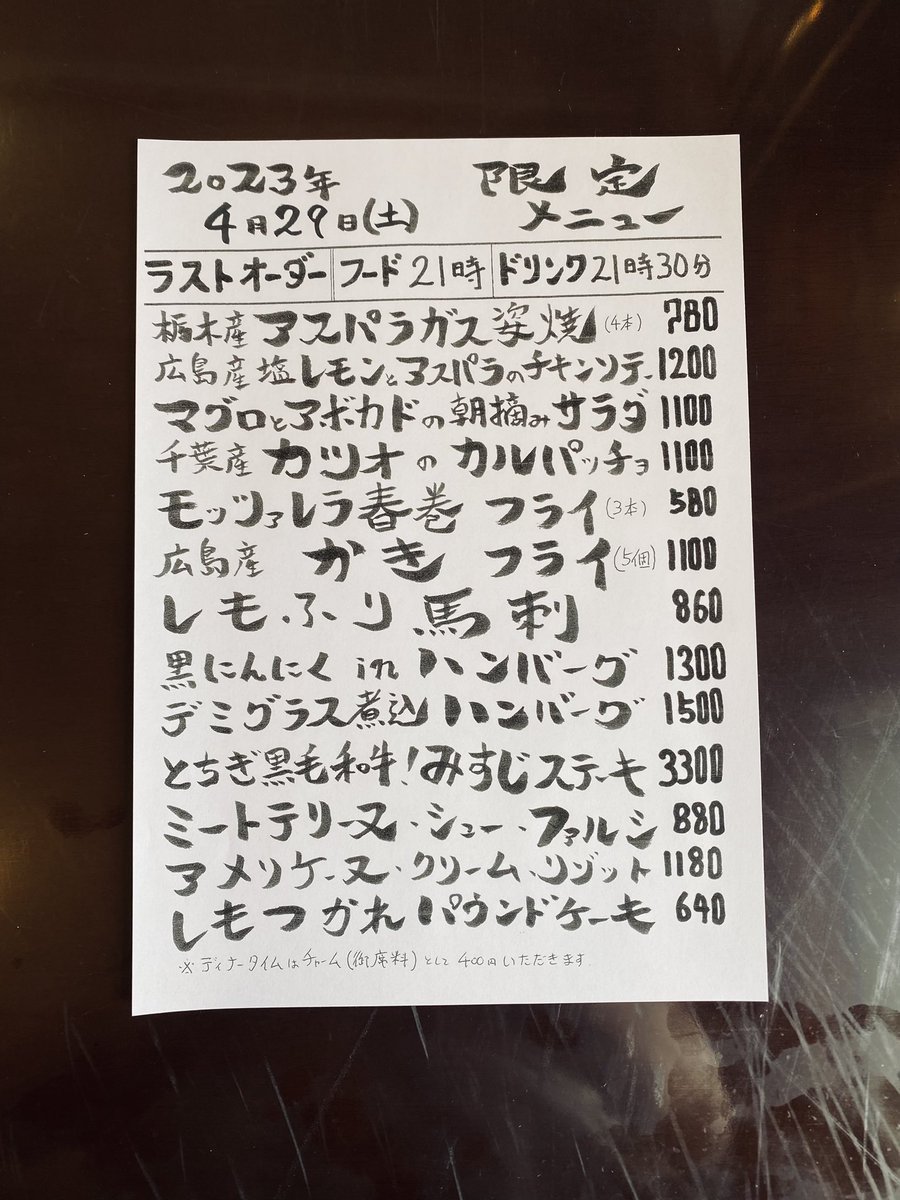 2023年 限定
4月29日(土) メニュー
ラストオーダー フード21時 ドリンク21時30分
栃木産 アスパラガス姿焼(4本) 780
広島産塩レモンとアスパラのチキンソテー 1200
マグロとアボカドの朝摘みサラダ 1100
千葉産 カツオのカルパッチョ 1100
モッツァレラ春巻 フライ(3本) 580
広島産 かき フライ(5個) 1100
しもふり馬刺 860
黒にんにく in ハンバーグ 1300
デミグラス煮込ハンバーグ 1500
とちぎ黒毛和牛!みすじステーキ 3300
ミートテリーヌ・シュー・ファルシ 880
アメリケーヌ・クリーム・リゾット 1180
しもつかれパウンドケーキ 640
※ディナータイムはチャーム(御席料)として400円いただきます.